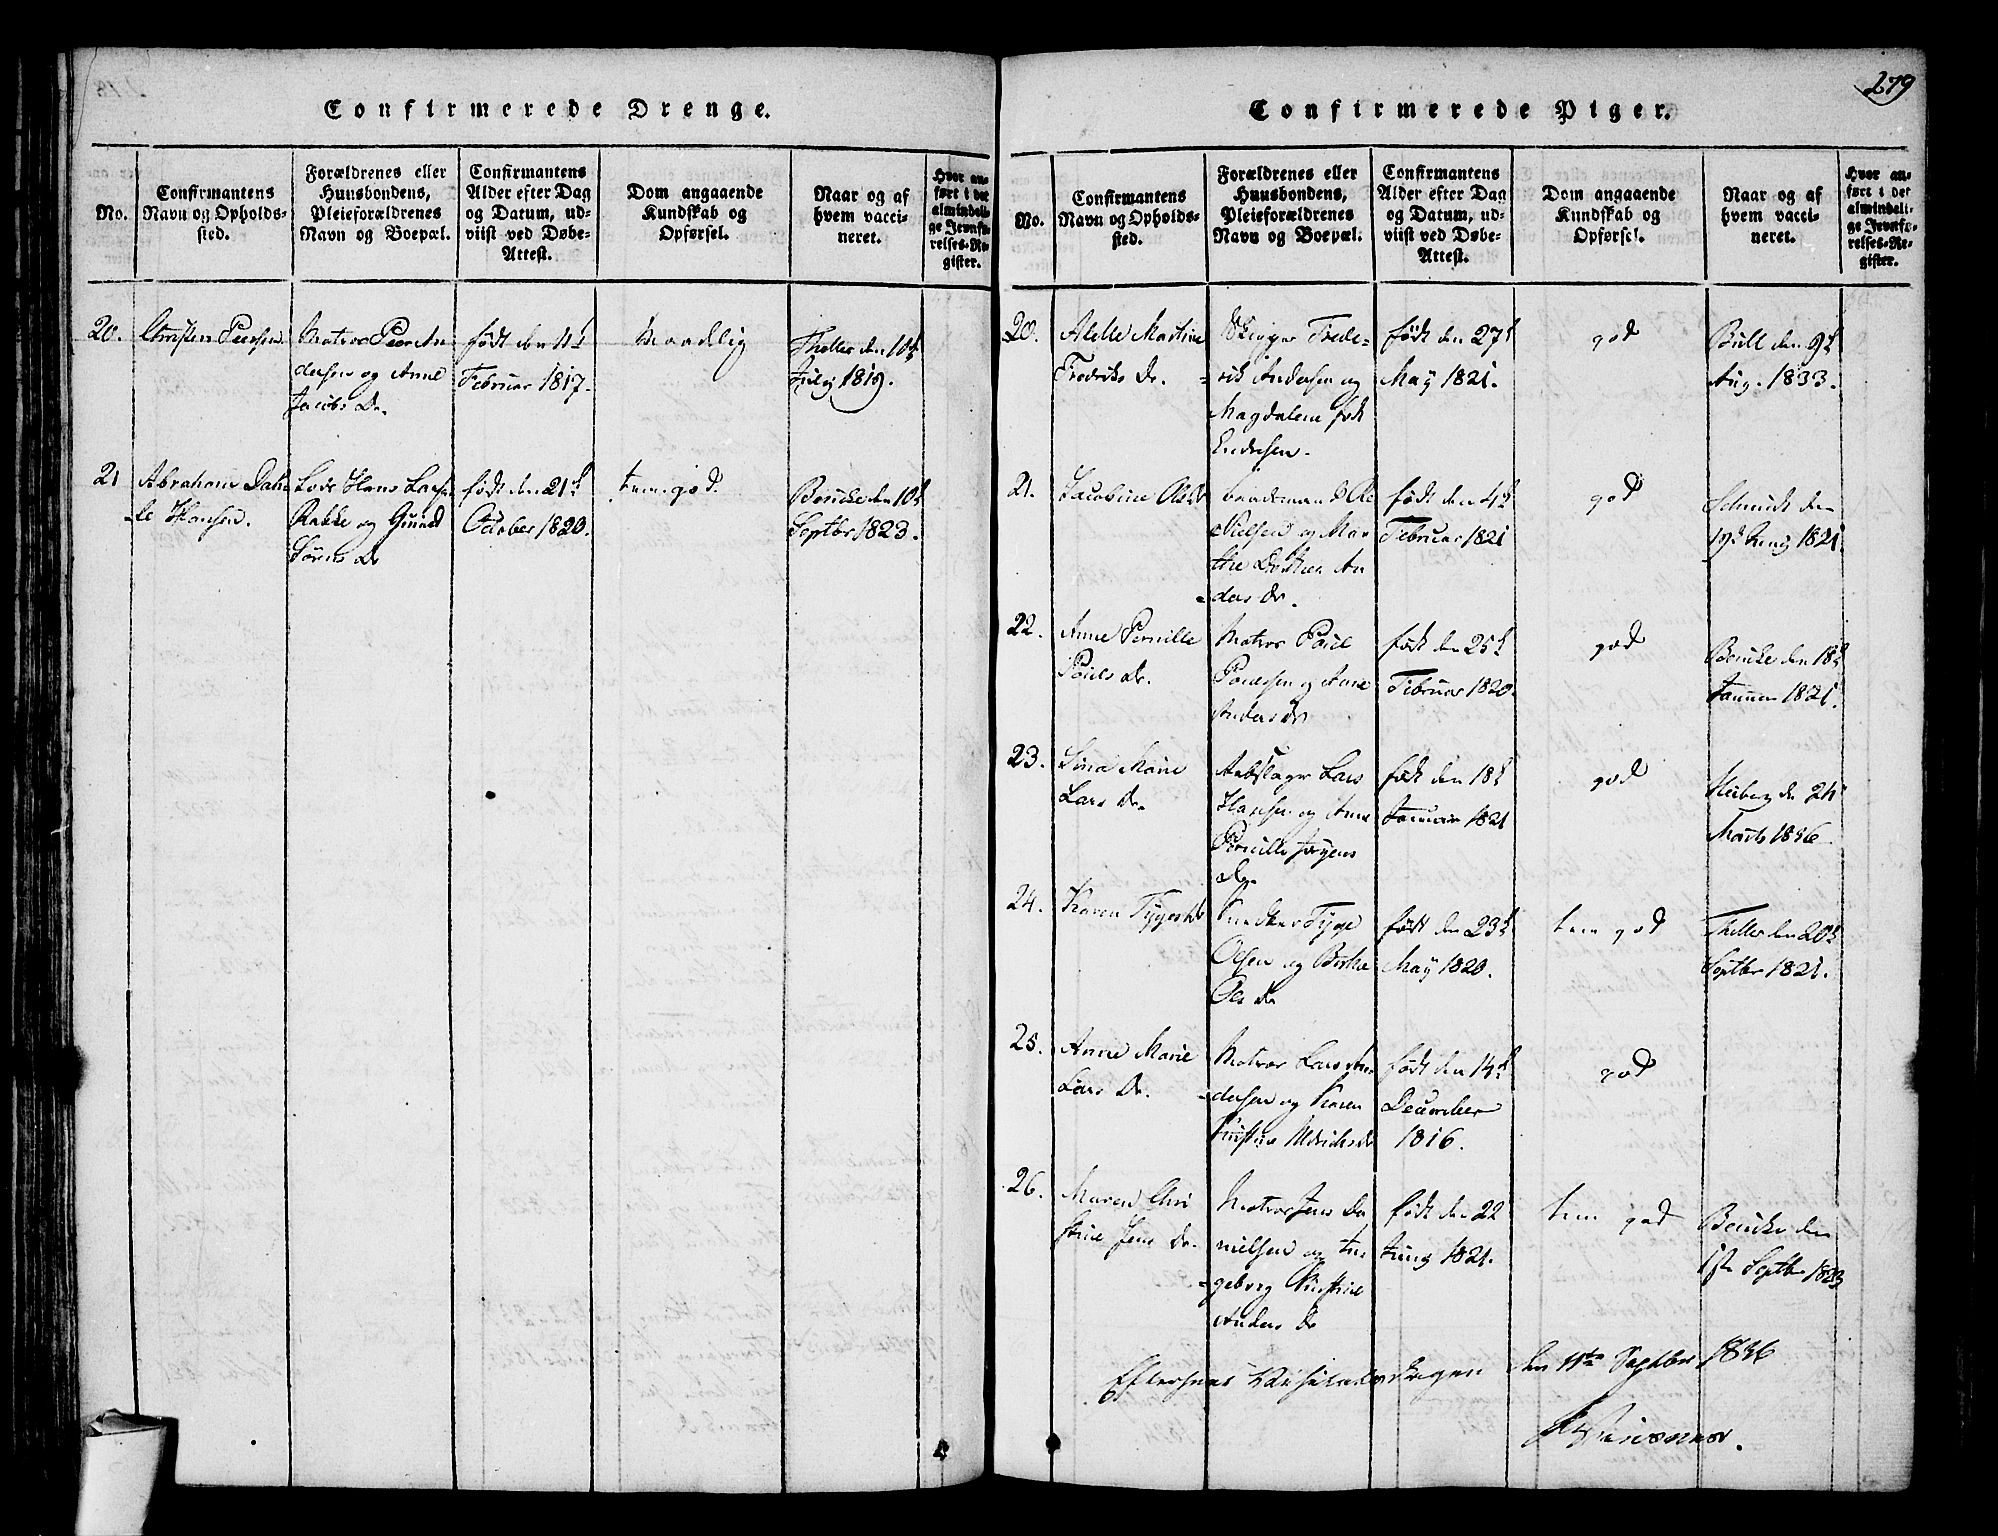 Confirmerede Drenge.
No.
Confirmantens
Navn og Opholds-
sted.
Forældrenes eller
Huusbondens,
Pleieforældrenes
Navn og Boepæl.
Confirmantens
Alder efter Dag
og Datum, ud-
viist ved Døbe-
Attest.
Dom angaaende
Kundskab og
Opførsel.
Naar og af
hvem vacci-
neret.
Hvor an-
ført i det
almindeli-
ge Jevnfø-
relses-Re-
gister.
20.
Christen Peersen
Matros Peer An
dersen og Anne
Jacobs Dr.
født den 11t
Februar 1817.
maadlig
Theller den 10t
July 1819.
21
Abraham
le Hansen.
Lods Hans Lars
Rakke og
Sørens Dr
født den 21t
October 1820.
tem. god.
den 10t
Septbr 1823.
279
Confirmerede Piger.
No.
Confirmantens
Navn og Opholds-
sted.
Forældrenes eller
Huusbondens,
Pleieforældrenes
Navn og Boepæl.
Confirmantens
Alder efter Dag
og Datum, ud-
viist ved Døbe-
Attest.
Dom angaaende
Kundskab og
Opførsel.
Naar og af
hvem vacci-
neret.
Hvor an-
ført i det
almindeli-
ge Jevnfø-
relses-Re-
gister.
20.
Martine
Fredriks Dr.
Frede-
rik Andersen og
Magdalene født
Endresen.
født den 27t
May 1821.
god
Bull den 9t
Aug. 1833.
21.
Jacobine Ols Dr
Ole
Nielsen og Mar
the Dorthea An
ders Dr.
født den 4t
Februar 1821
god
Schmidt den
1821
22.
Anne Pernille
Pouls Dr.
Matros Poul
Poulsen og Anne
Anders Dr
født den 25t
Februar 1820.
god
den 18t
Januar 1821.
23.
Marie
Lars Dr.
Lars
Hansen og Anne
Pernille Jørgens
Dr.
født den 18t
Januar 1821
god
Heiberg den 24
Marts 1836
24.
Karen Tyges Dr
Snedker Tyge
Olsen og Berthe
Ols Dr
født den 23t
May 1820.
tem god
Theller den 20t
Septbr 1821.
25.
Anne Marie
Lars Dr.
Matros Lars An
dersen og Karen
født den 14t
December
1816.
god
26.
Maren Chri
stine Jens Dr.
Matros Jens Da
nielsen og In
geborg Christine
Anders Dr
født den 22
Juny 1821.
tem god
den
1ste Septbr 1823
Eftersees den 11te Septber 1836